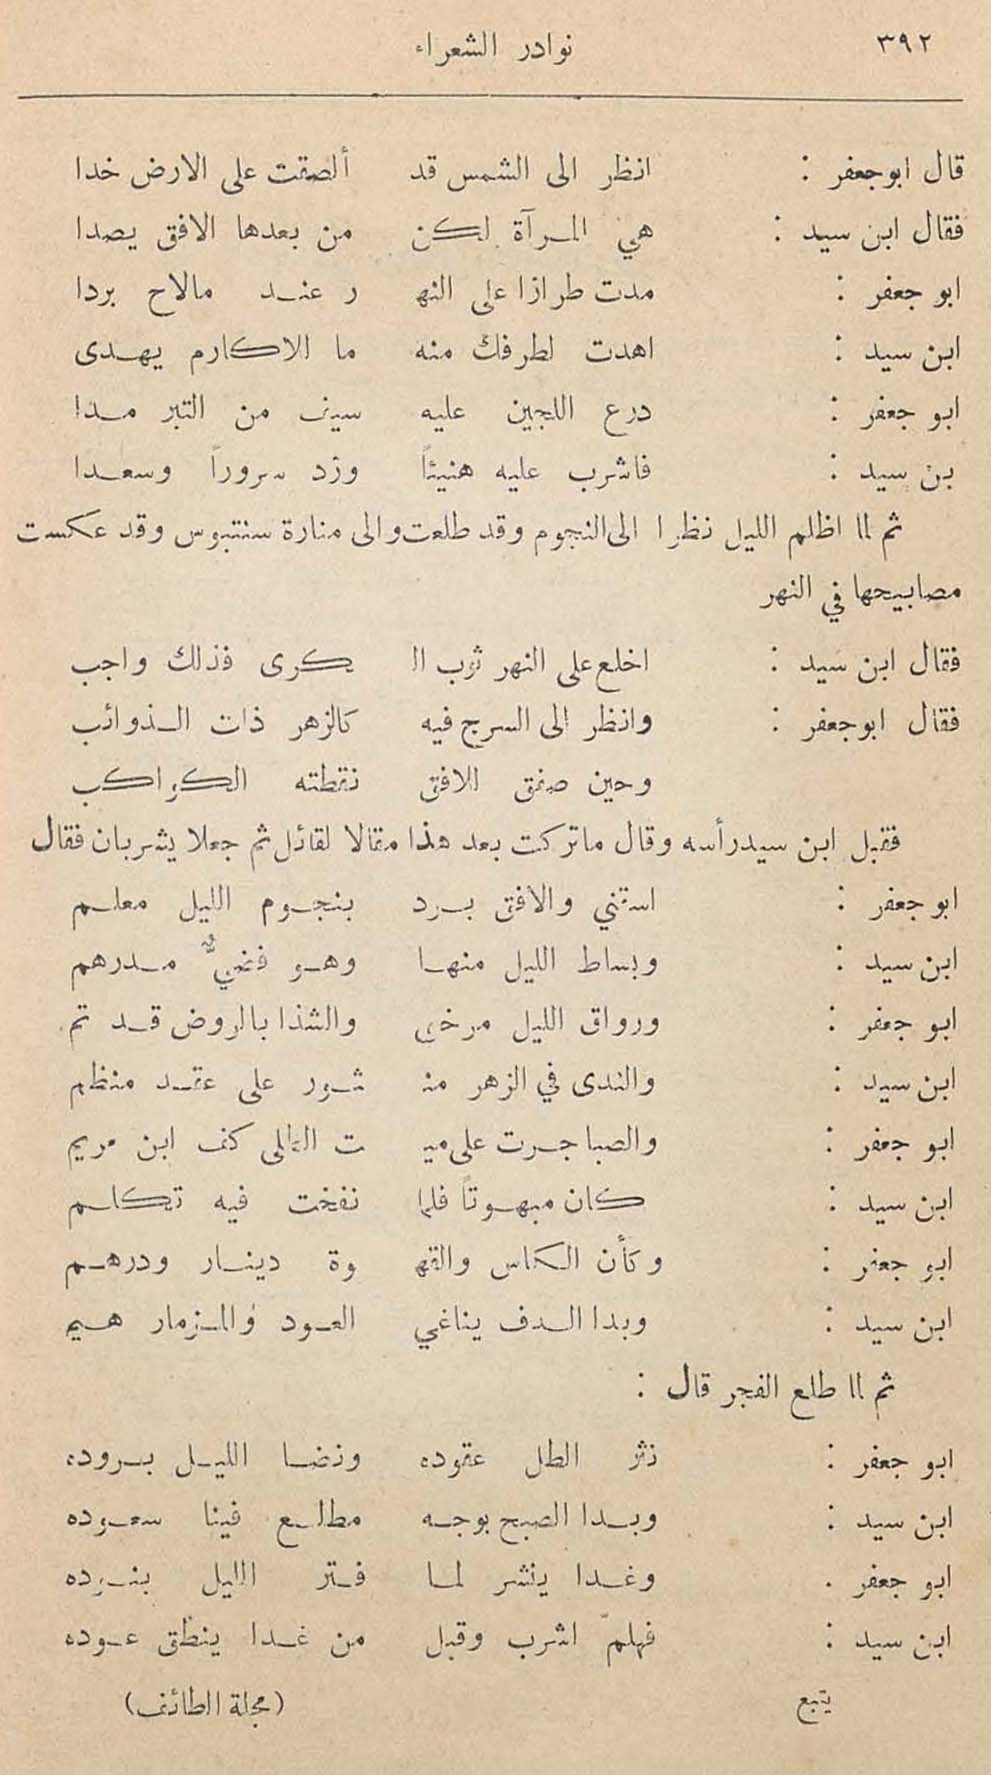 ٣٩٢ نوادر الشعراء
قال ابوجعفر : انظر الى الشمس قد ألصقت على الارض خدا
فقال ابن سيد : هي المرآة لكن من بعدها الافق يصدا
ابو جعفر : مدت طرازا على النهـ ر عند مالاح بردا
ابن سيد : اهدت لطرفك منه ما الاكارم يهدى
ابو جعفر : درع اللجين عليه سيف من التبر مدا
بن سيد : فاشرب عليه هنيئاً وزد سروراً وسعدا
ثم لما اظلم الليل نظرا الى النجوم وقد طلعت والى منارة سنتبوس وقد عكست
مصابيحها في النهر
فقال ابن سيد : اخلع على النهر ثوب الـ ـكرى فذلك واجب
فقال ابوجعفر : وانظر الى السرج فيه كالزهر ذات الذوائب
وحين صفق الافق نقطته الكواكب
فقبل ابن سيد رأسه وقال ماتركت بعد هذا مقالا لقائل ثم جعلا يشربان فقال
ابو جعفر : اسقني والافق برد بنجوم الليل معلم
ابن سيد : وبساط الليل منها وهو فضيٌّ مدرهم
ابو جعفر : ورواق الليل مرخى والشذا بالروض قد تم
ابن سيد : والندى في الزهر منـ ـثور على عقد منظم
ابو جعفر : والصبا جرت على ميـ ت كف ابن مريم
ابن سيد : كان مبهوتاً فلما نفخت فيه تكلم
ابو جعفر : وكأن الكاس والقهـ وة دينار ودرهم
ابن سيد : وبدا الدف يناغي العود والمزمار هيم
ثم لما طلع الفجر قال :
ابو جعفر : نثر الطل عقوده ونضا الليل بروده
ابن سيد : وبدا الصبح بوجه مطلع فينا سعوده
ابو جعفر . وغدا ينشر لما فتر الليل بنوده
ابن سيد : فهلمّ اشرب وقبل من غدا ينطق عوده
يتبع (مجلة الطائف)